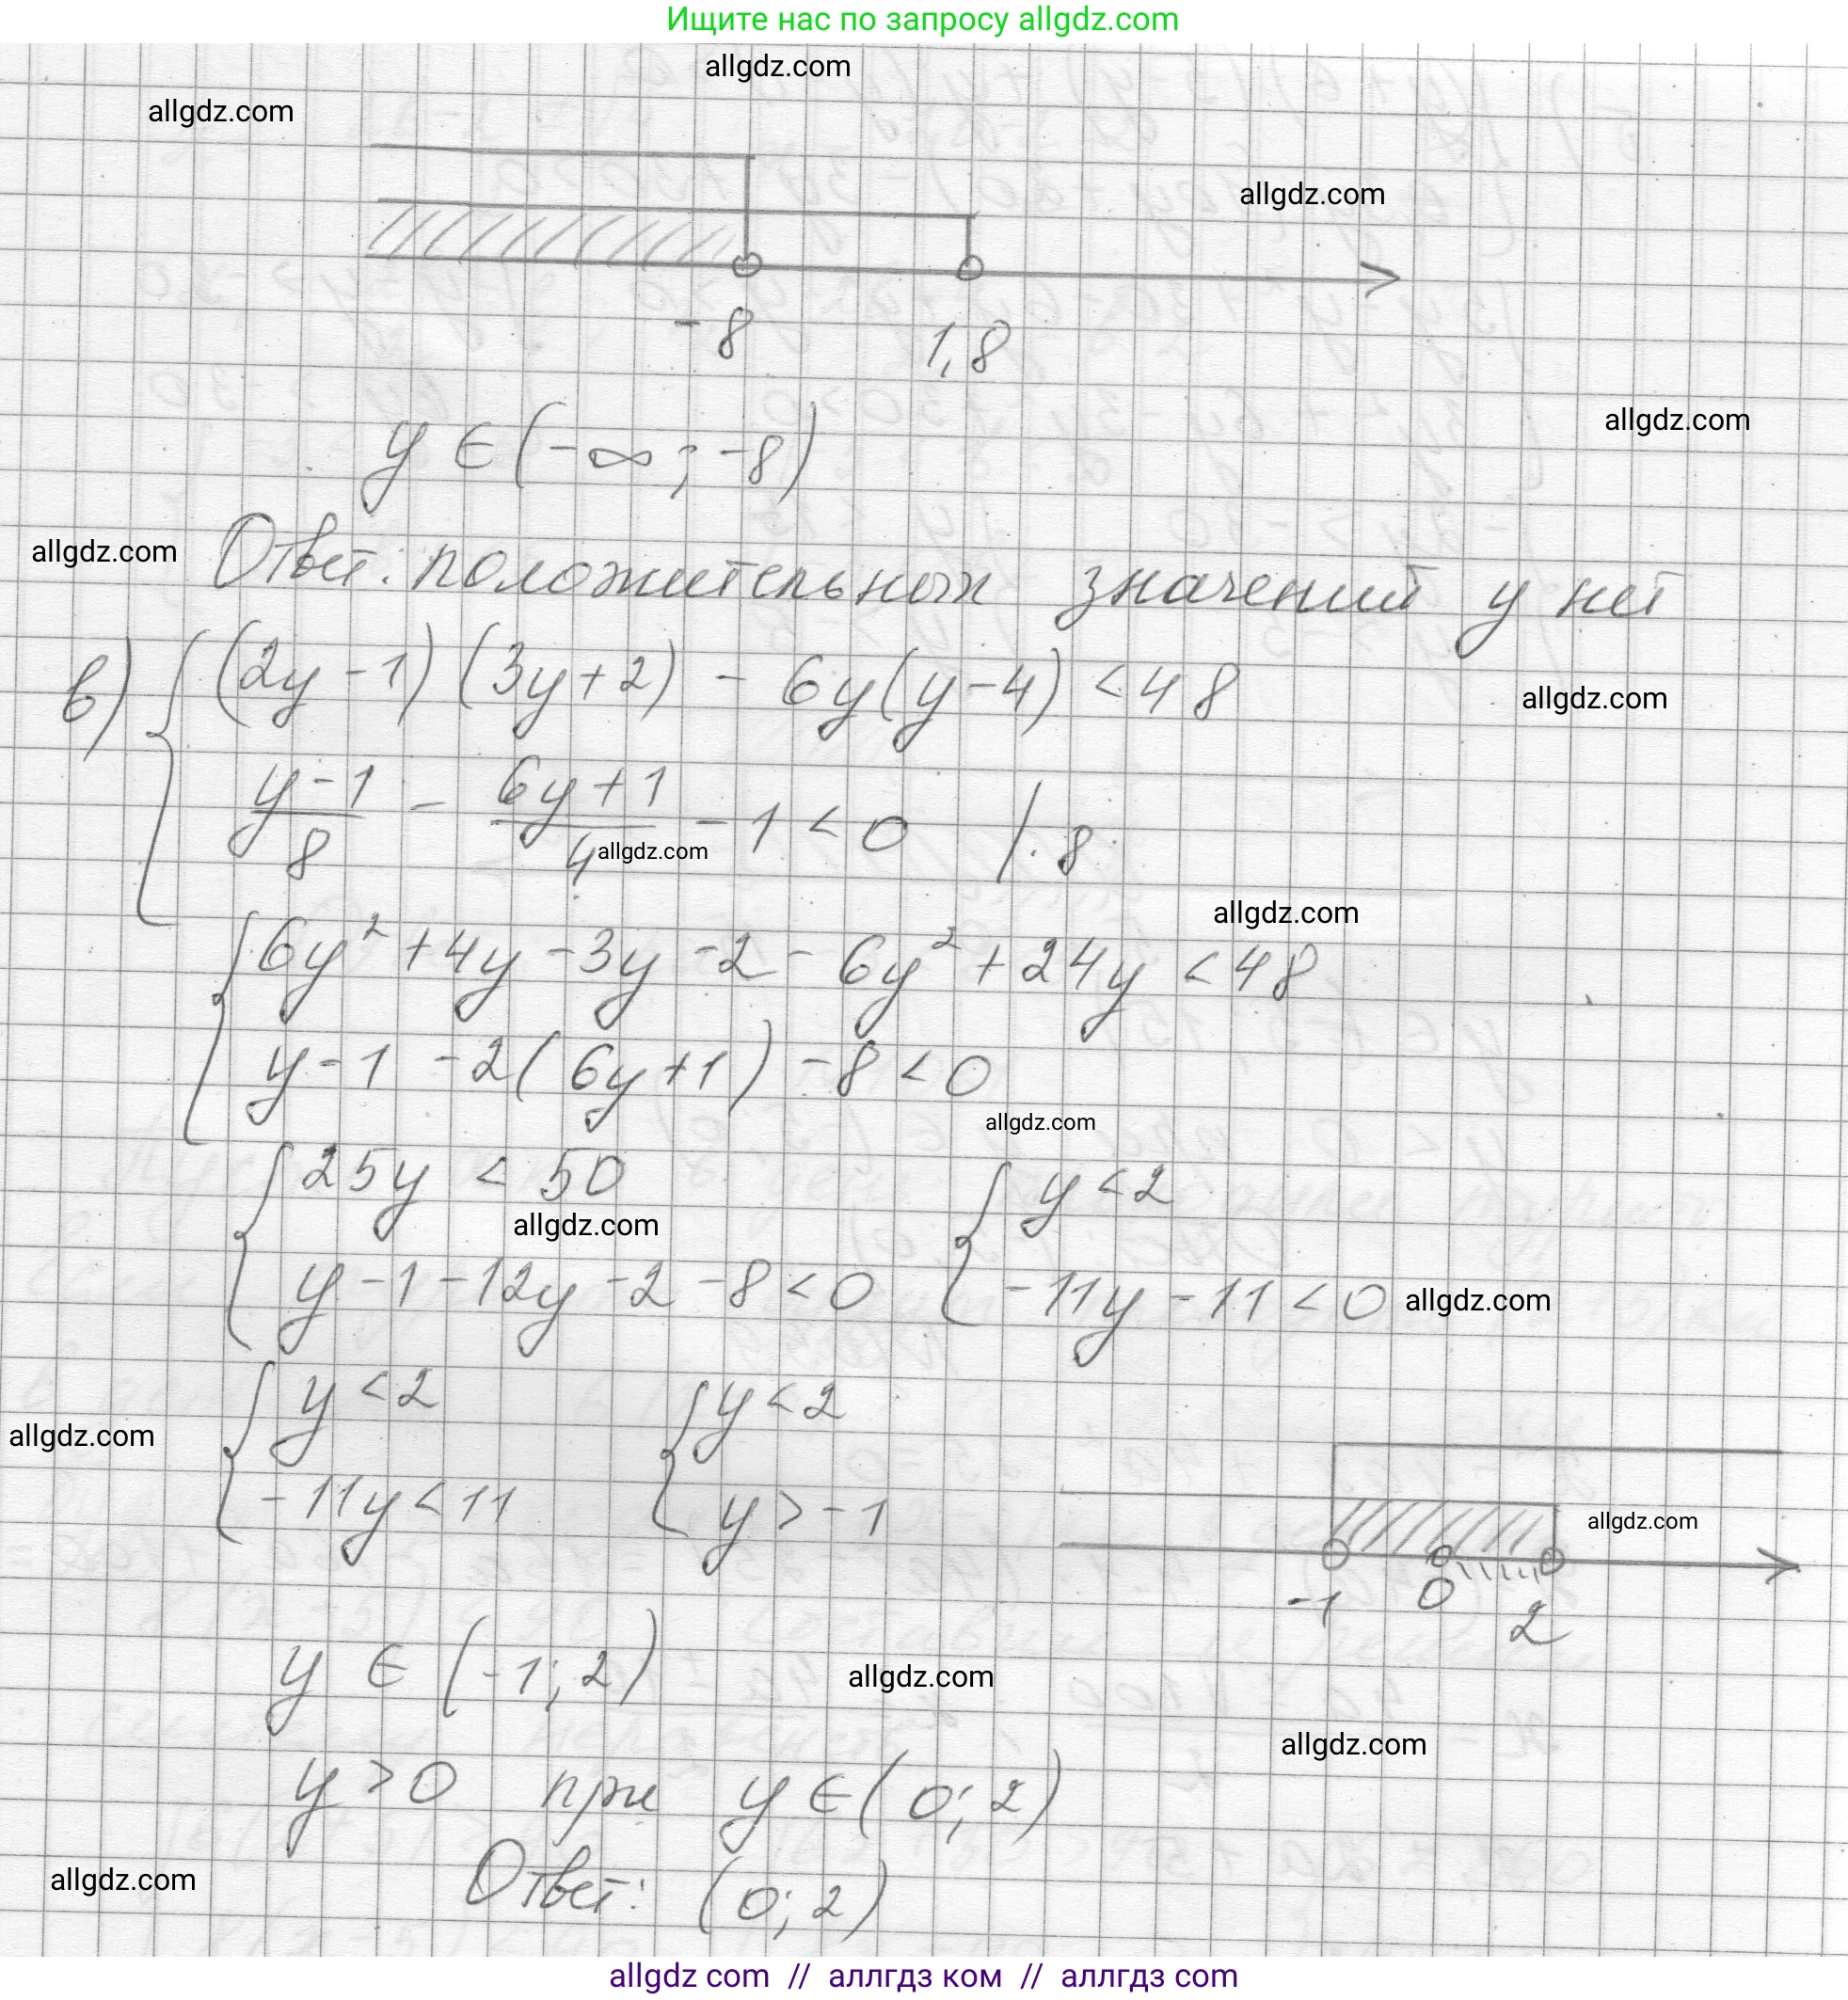 Ищите нас по запросу allgdz.com
allgdz.com
allgdz.com
allgdz.com
-8 1,8
allgdz.com
y ∈ (-∞; -8)
allgdz.com
Ответ: положительных значений y нет
в) { (2y-1)(3y+2) - 6y(y-4) < 48
allgdz.com
(y-1)/8 - (6y+1)/4 - 1 < 0 / · 8
allgdz.com
allgdz.com
{ 6y² + 4y - 3y - 2 - 6y² + 24y < 48
y - 1 - 2(6y+1) - 8 < 0
allgdz.com
{ 25y < 50 { y < 2
allgdz.com
y - 1 - 12y - 2 - 8 < 0 -11y - 11 < 0
allgdz.com
{ y < 2 { y < 2
allgdz.com
-11y < 11 y > -1
allgdz.com
-1 0 2
y ∈ (-1; 2)
allgdz.com
allgdz.com
y > 0 при y ∈ (0; 2)
allgdz.com
Ответ: (0; 2)
allgdz com // аллгдз ком // аллгдз com